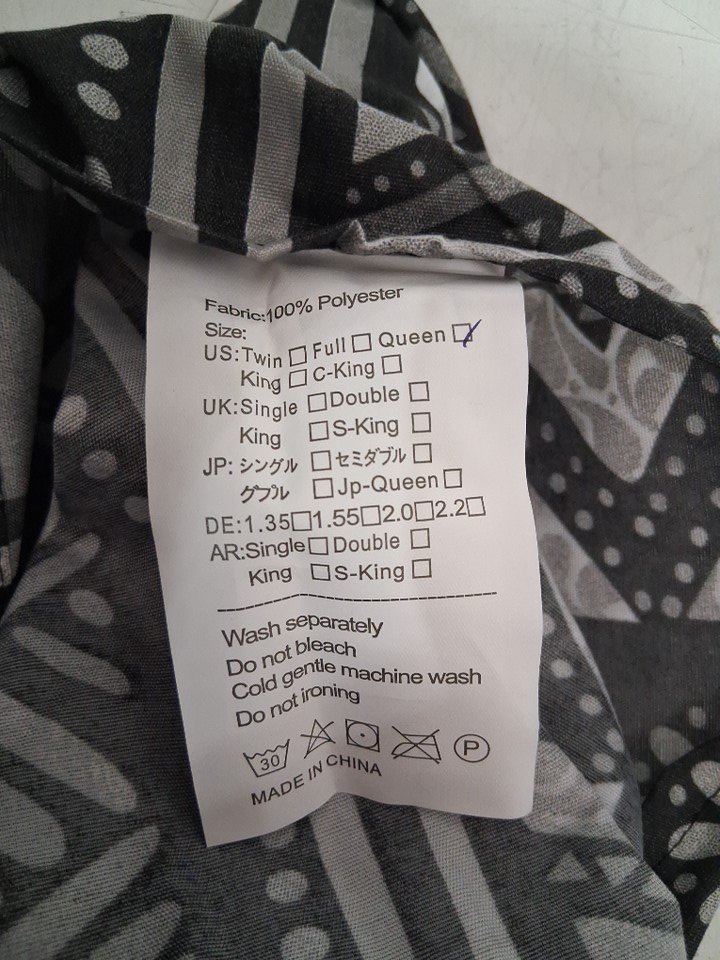 Fabric:100% Polyester
Size:
US:Twin □ Full □ Queen ☑
King □ C-King □
UK:Single □ Double □
King □ S-King □
JP: シングル □ セミダブル □
グブル □ Jp-Queen □
DE:1.35□1.55□2.0□2.2□
AR:Single □ Double □
King □ S-King □
Wash separately
Do not bleach
Cold gentle machine wash
Do not ironing
30 P
MADE IN CHINA